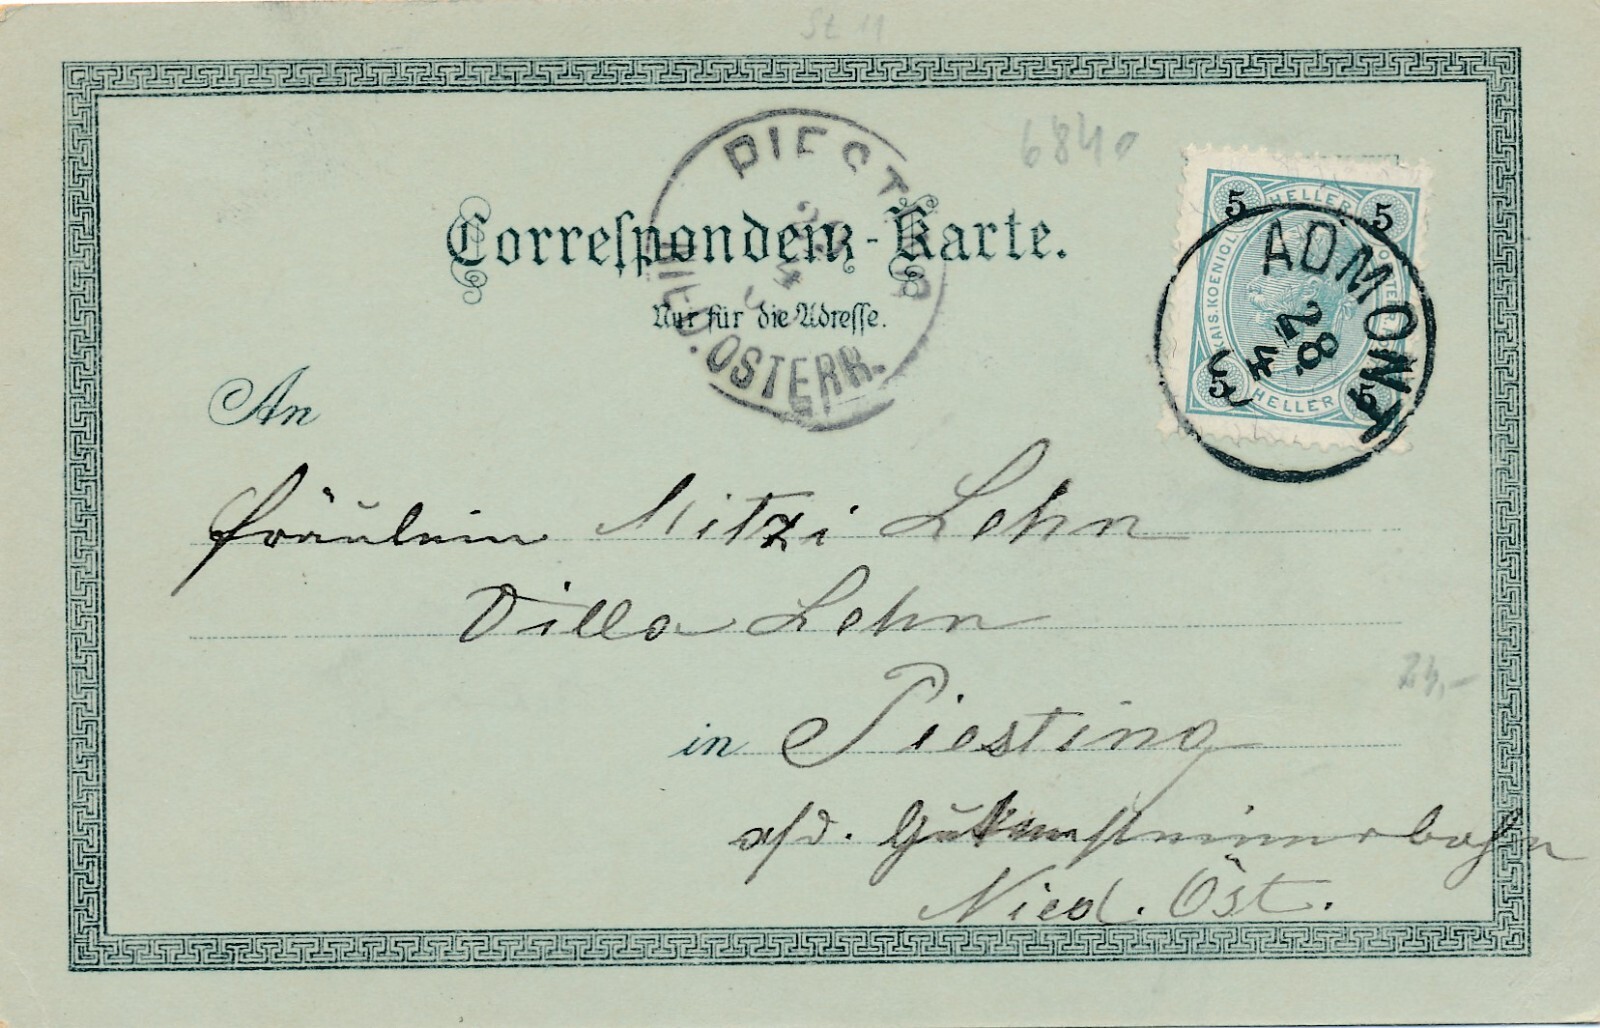 St 11
6840
PIESTING
NIED. OSTERR.
Correspondenz-Karte.
Nur für die Adresse.
5 HELLER 5
KAIS. KOENIGL.
5 HELLER 5
ADMONT
28.
4
An
Fräulein Mitzi Lehn
Villa Lehn
in Piesting
a/d. Gutensteinerbahn
Nied. Öst.
24,-